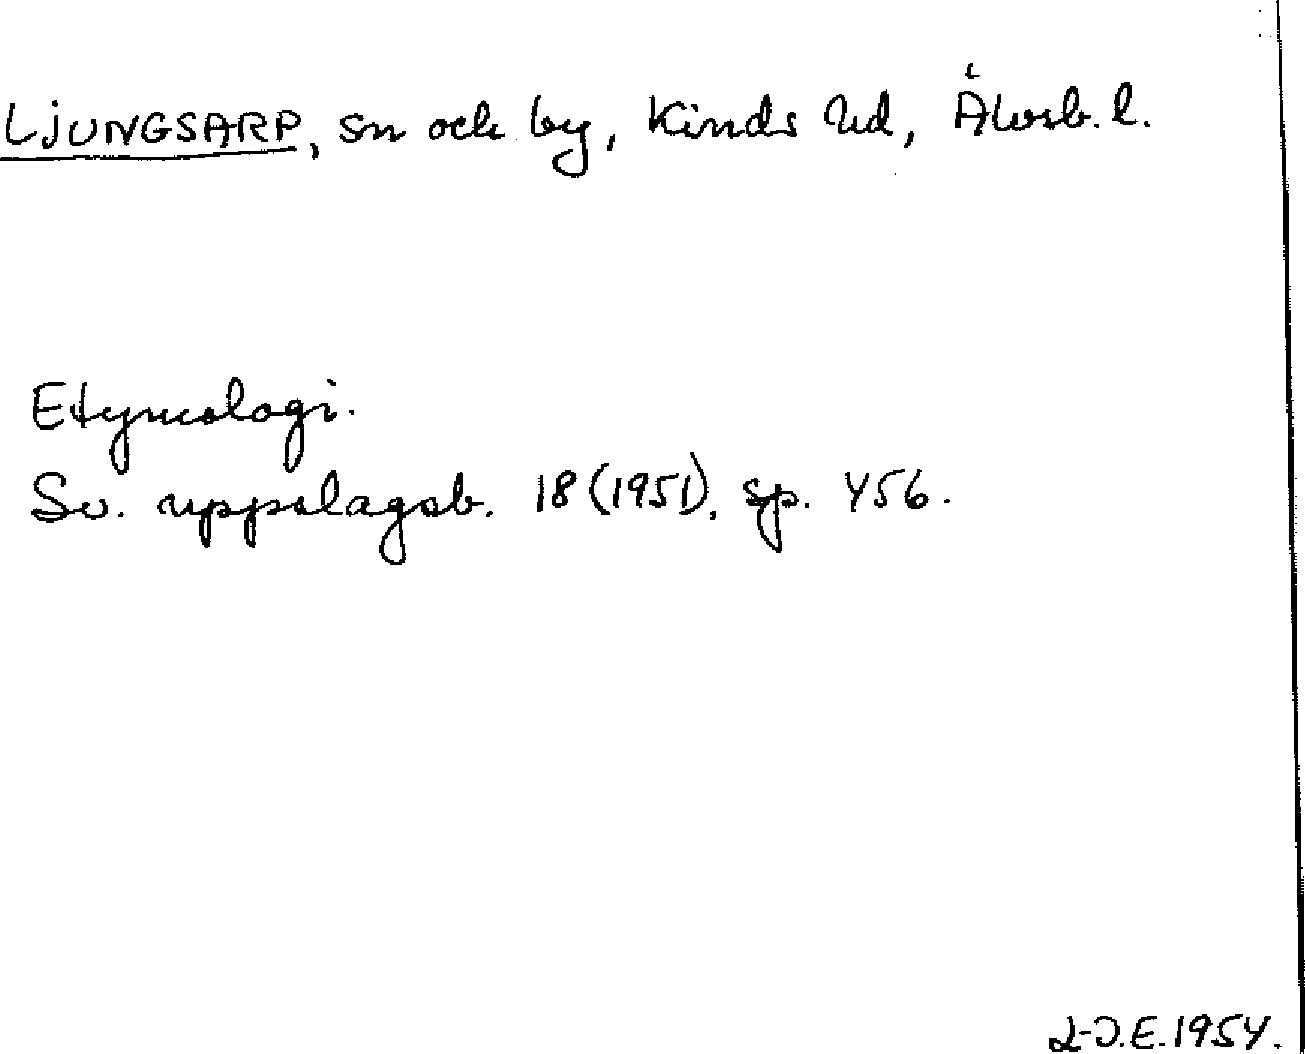 LJUNGSARP, sn och by, Kinds hd, Älvsb. l.
Etymologi.
Sv. uppslagsb. 18 (1951), sp. 456.
L-O.E. 1954.